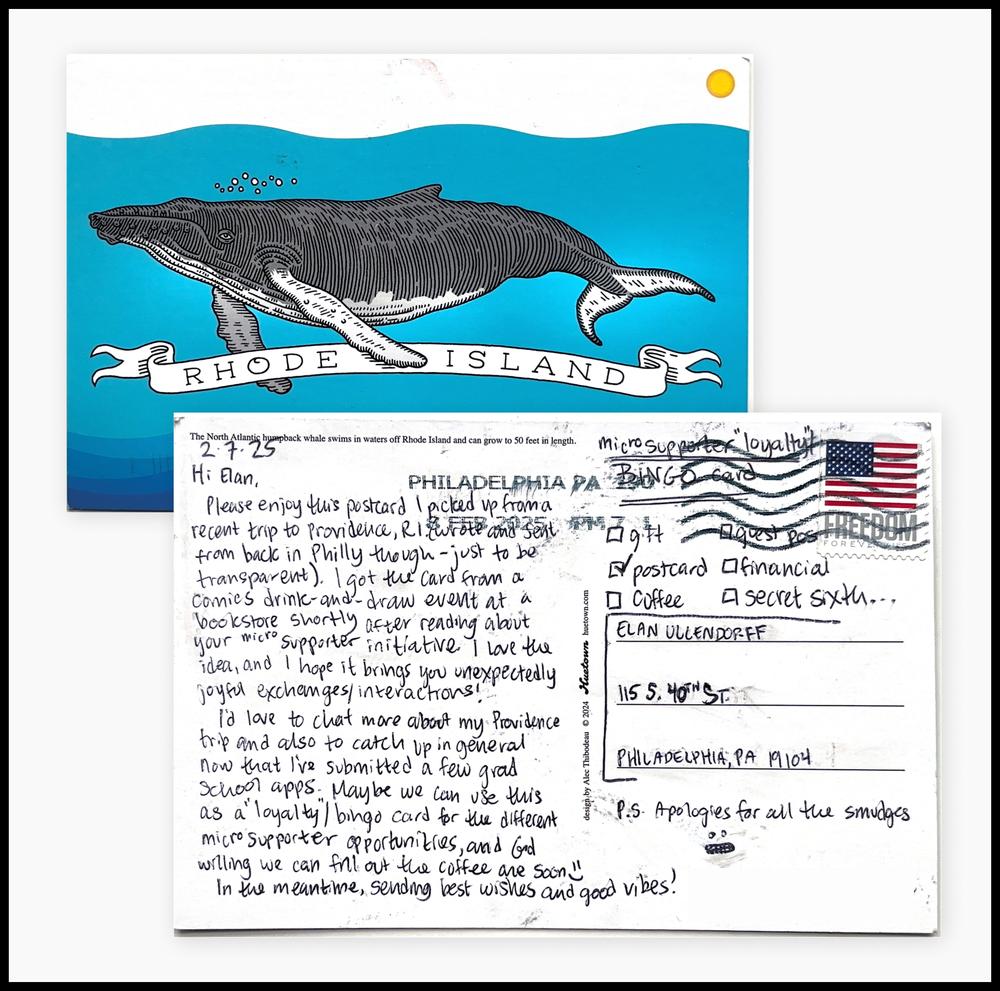 RHODE ISLAND
The North Atlantic humpback whale swims in waters off Rhode Island and can grow to 50 feet in length.
2.7.25
Hi Elan,
Please enjoy this postcard I picked up from a
recent trip to Providence, RI (wrote and sent
from back in Philly though - just to be
transparent). I got the card from a
comics drink-and-draw event at a
bookstore shortly after reading about
your micro supporter initiative. I love the
idea, and I hope it brings you unexpectedly
joyful exchanges/interactions!
I'd love to chat more about my Providence
trip and also to catch up in general
now that I've submitted a few grad
school apps. Maybe we can use this
as a "loyalty"/bingo card for the different
micro supporter opportunities, and God
willing we can fill out the coffee one soon
In the meantime, sending best wishes and good vibes!
PHILADELPHIA PA
8 FEB 2025 PM
design by Alec Thibodeau © 2024 Huetown huetown.com
micro supporter "loyalty"/
BINGO card
gift guest pos
postcard financial
coffee secret sixth...
FREEDOM
FOREVER
ELAN ULLENDORFF
115 S. 40TH ST.
PHILADELPHIA, PA 19104
P.S. Apologies for all the smudges